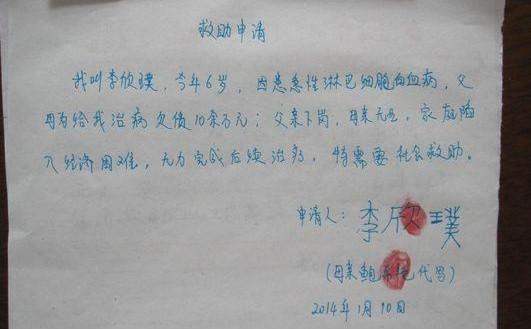 救助申请
我叫李欣璞，今年6岁，因患急性淋巴细胞白血病，父
母为给我治病欠债10余万元；父亲下岗，母亲无业，家庭陷
入经济困难，无力完成后续治疗。特需要社会救助。
申请人：李欣璞
（母亲鲍 代写）
2014年1月10日